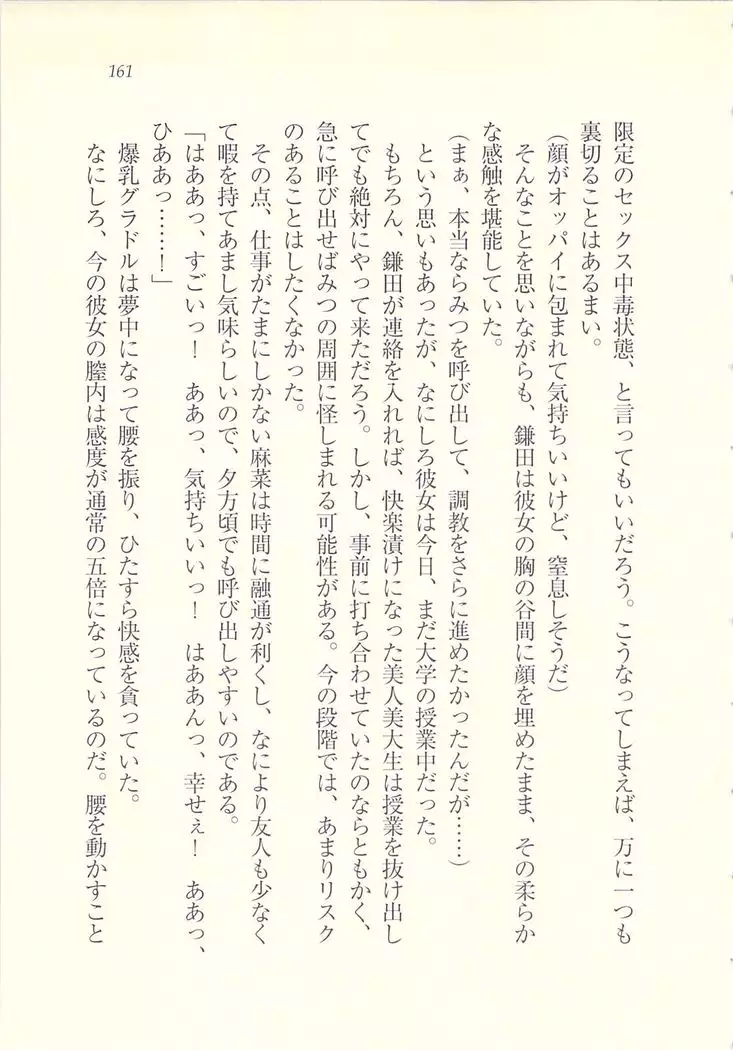 161
限定のセックス中毒状態、と言ってもいいだろう。こうなってしまえば、万に一つも
裏切ることはあるまい。
(顔がオッパイに包まれて気持ちいいけど、窒息しそうだ)
そんなことを思いながらも、鎌田は彼女の胸の谷間に顔を埋めたまま、その柔らか
な感触を堪能していた。
(まぁ、本当ならみつを呼び出して、調教をさらに進めたかったんだが……)
という思いもあったが、なにしろ彼女は今日、まだ大学の授業中だった。
もちろん、鎌田が連絡を入れれば、快楽漬けになった美人美大生は授業を抜け出し
てでも絶対にやって来ただろう。しかし、事前に打ち合わせていたのならともかく、
急に呼び出せばみつの周囲に怪しまれる可能性がある。今の段階では、あまりリスク
のあることはしたくなかった。
その点、仕事がたまにしかない麻菜は時間に融通が利くし、なにより友人も少なく
て暇を持てあまし気味らしいので、夕方頃でも呼び出しやすいのである。
「はああっ、すごいっ！　ああっ、気持ちいいっ！　はああんっ、幸せぇ！　ああっ、
ひああっ……！」
爆乳グラドルは夢中になって腰を振り、ひたすら快感を貪っていた。
なにしろ、今の彼女の膣内は感度が通常の五倍になっているのだ。腰を動かすこと